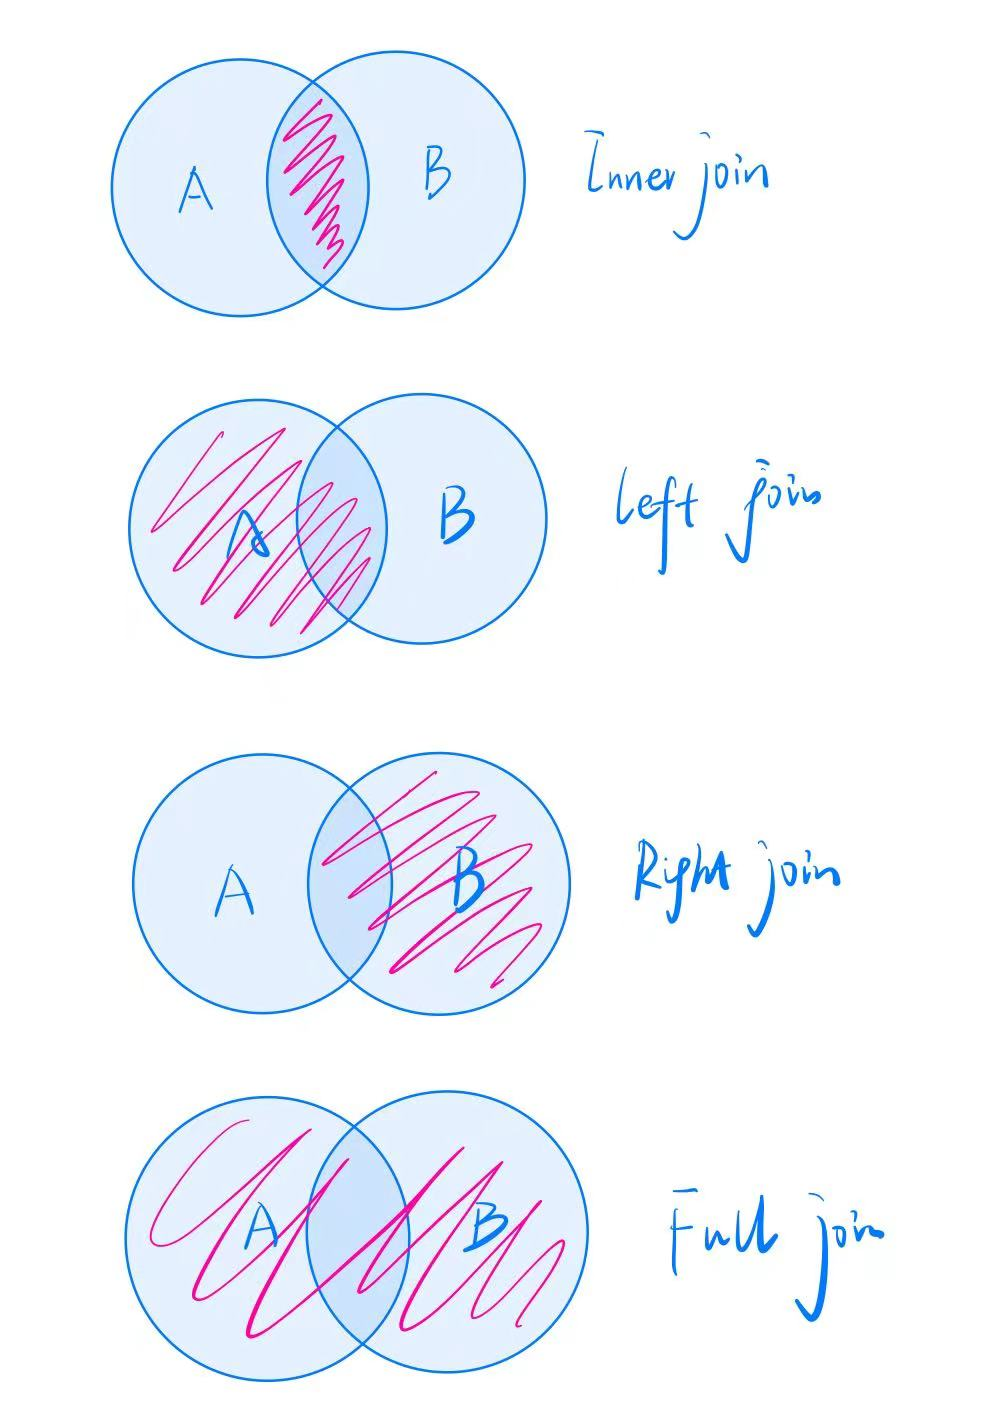 A B Inner join
A B Left join
A B Right join
A B Full join